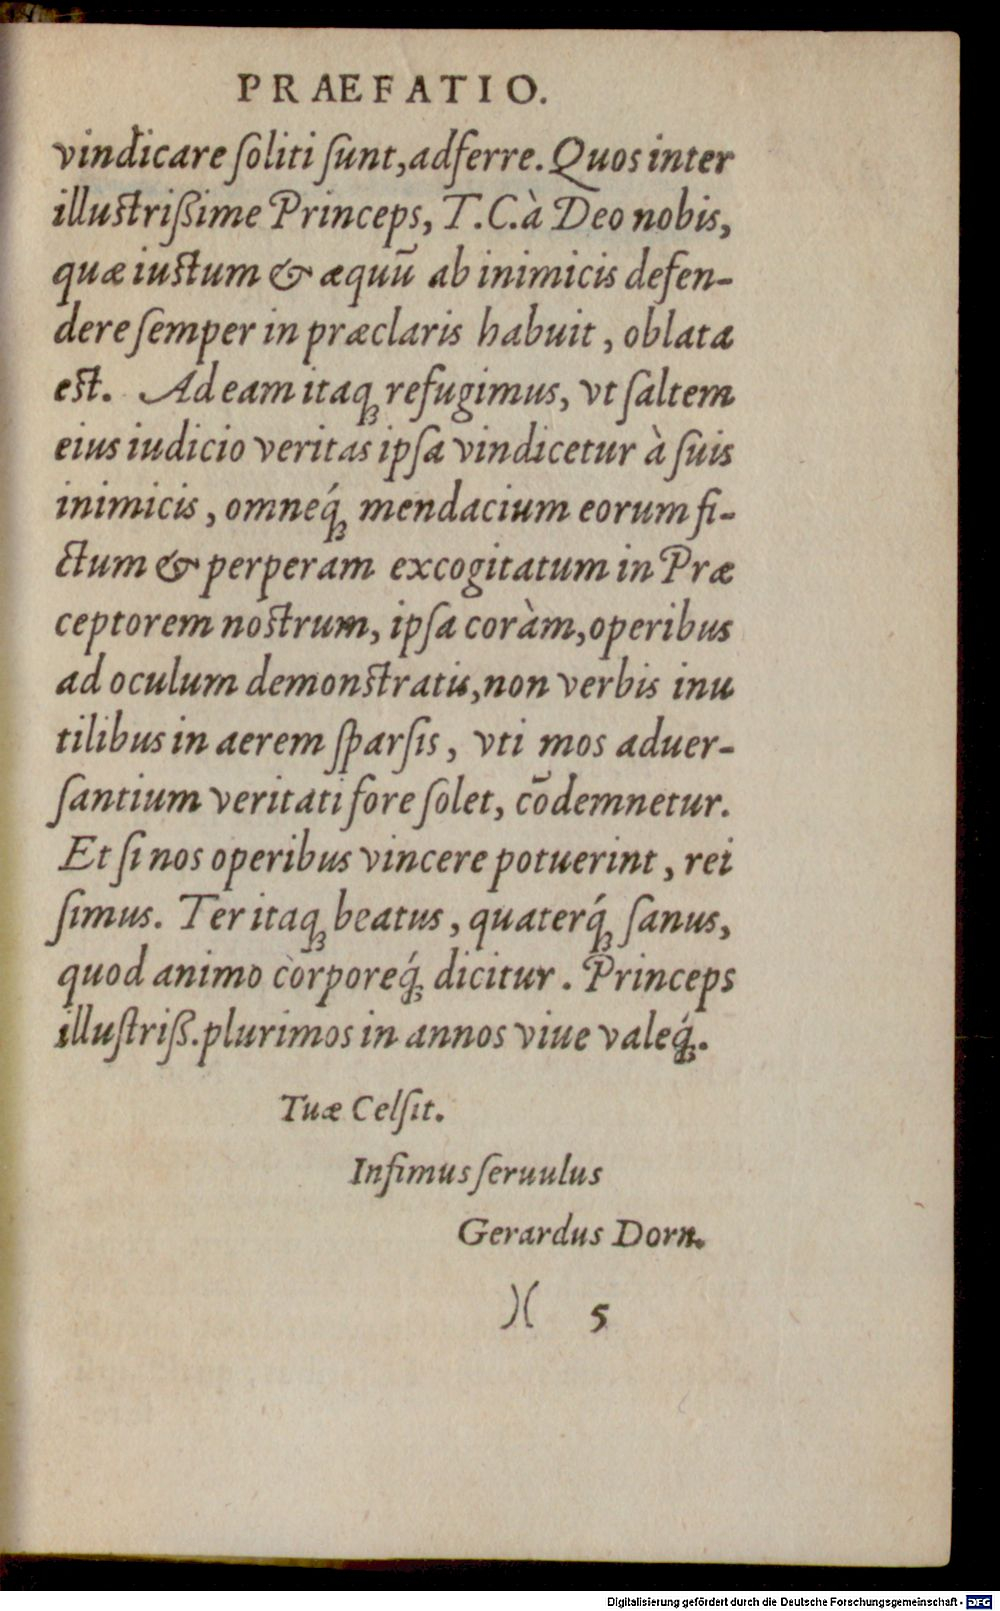 PRAEFATIO.
vindicare ſoliti ſunt, adferre. Quos inter
illuſtriſsime Princeps, T.C. à Deo nobis,
quæ iuſtum & æquũ ab inimicis defen-
dere ſemper in præclaris habuit, oblata
eſt. Ad eam itaq́ꝫ refugimus, vt ſaltem
eius iudicio veritas ipſa vindicetur à ſuis
inimicis, omneq́ꝫ mendacium eorum fi-
ctum & perperam excogitatum in Præ
ceptorem noſtrum, ipſa coràm, operibus
ad oculum demonſtratis, non verbis inu
tilibus in aerem ſparſis, vti mos aduer-
ſantium veritati fore ſolet, cõdemnetur.
Et ſi nos operibus vincere potuerint, rei
ſimus. Ter itaqꝫ beatus, quaterq́ꝫ ſanus,
quod animo corporeq́ꝫ dicitur. Princeps
illuſtriſs. plurimos in annos viue valeq́ꝫ.
Tuæ Celſit.
Infimus ſeruulus
Gerardus Dorn.
)( 5
Digitalisierung gefördert durch die Deutsche Forschungsgemeinschaft - DFG